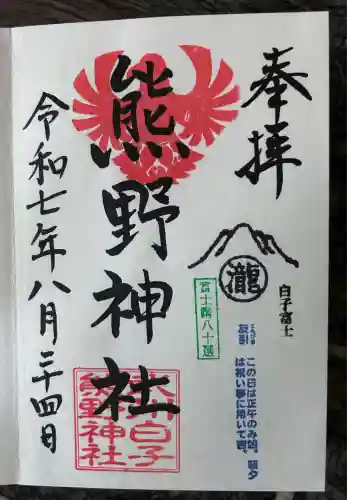 奉拝
瀧
白子富士
富士塚八十選
ともびき
友引
この日は正午のみ凶。朝夕
は祝い事に用いて吉。
熊野神社
白子
熊野神社
令和七年八月二十四日